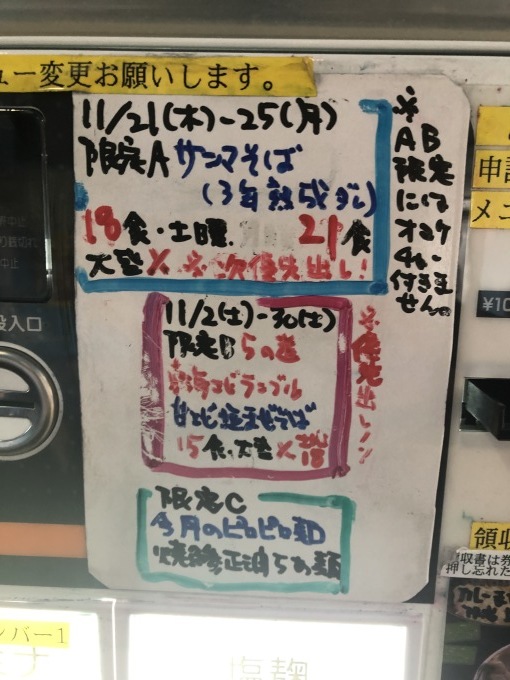 ュー変更お願いします。
11/21(木)-25(月)
限定A サンマそば
(3年熟成ダレ)
18食・土曜 21食
大盛× ※次優先出し!
※AB限定に
付きません。
11/2(土)-30(土)
限定B らの巻
甘エビ塩まぜそば
15食・大盛×
限定C
今月のピロピロ麺
らぁ麺
投入口
申請
メニ
¥10
領収
収書は券
押し忘れた
ンバー1
塩麹